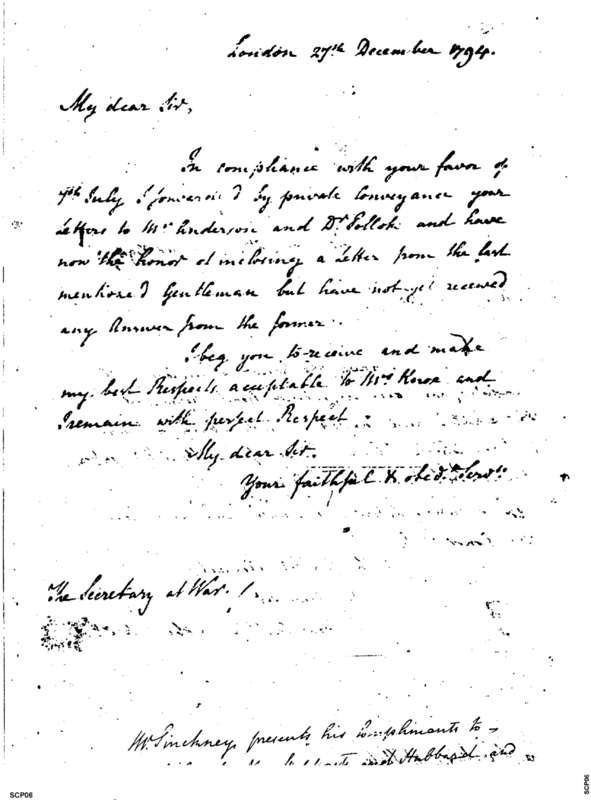 London 27th December 1794.
My dear Sir,
In compliance with your favor of
7th July I forwarded by private Conveyance your
Letters to Mr Anderson and Dr Pollok and have
now the honor of inclosing a Letter from the last
mentioned Gentleman but have not yet received
any Answer from the former.
I beg you to receive and make
my best Respects acceptable to Mrs Knox and
I remain with perfect Respect.
My dear Sir.
Your faithful & obedt Servt
The Secretary at War.
Mr Pinckney presents his Compliments to
and Hubbard and
SCP06
SCP06